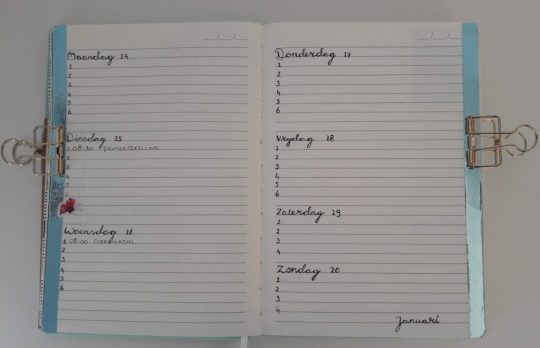 Maandag 14
1
2
3
4
5
6
Dinsdag 15
1 08:30
2
3
4
5
6
Woensdag 16
1 08:00
2
3
4
5
6
Donderdag 17
1
2
3
4
5
6
Vrijdag 18
1
2
3
4
5
6
Zaterdag 19
1
2
3
4
Zondag 20
1
2
3
4
Januari